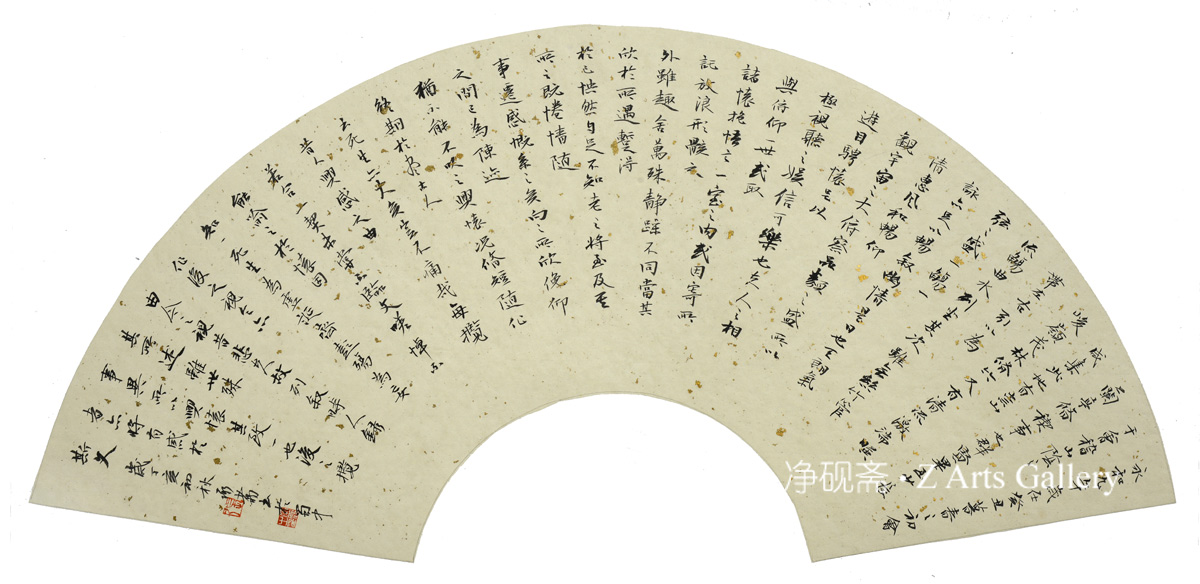 永和九年歲在癸丑暮春之初會
于會稽山陰之
蘭亭脩稧事也群賢畢至少長
咸集此地有崇山
峻領茂林脩竹又有清流激湍暎
帶左右引以為
流觴曲水列坐其次雖無絲竹管
弦之盛一觴一
詠亦足以暢敘幽情是日也天朗氣
清惠風和暢仰
觀宇宙之大俯察品類之盛所以
遊目騁懷足以
極視聽之娛信可樂也夫人之相
與俯仰一世或取
諸懷抱悟言一室之內或因寄所
託放浪形骸之
外雖趣舍萬殊靜躁不同當其
欣於所遇暫得
於己怏然自足不知老之將至及其
所之既惓情隨
事遷感慨系之矣向之所欣俛仰
之間已為陳迹
猶不能不以之興懷況脩短隨化
終期於盡古人
云死生亦大矣豈不痛哉每攬
昔人興感之由
若合一契未嘗不臨文嗟悼不
能喻之於懷固
知一死生為虛誕齊彭殤為妄
作後之視今亦
由今之視昔悲夫故列敘時人錄
其所述雖世殊
事異所以興懷其致一也後之攬
者亦將有感於
斯文 歲丁亥初秋
净砚斋 - Z Arts Gallery